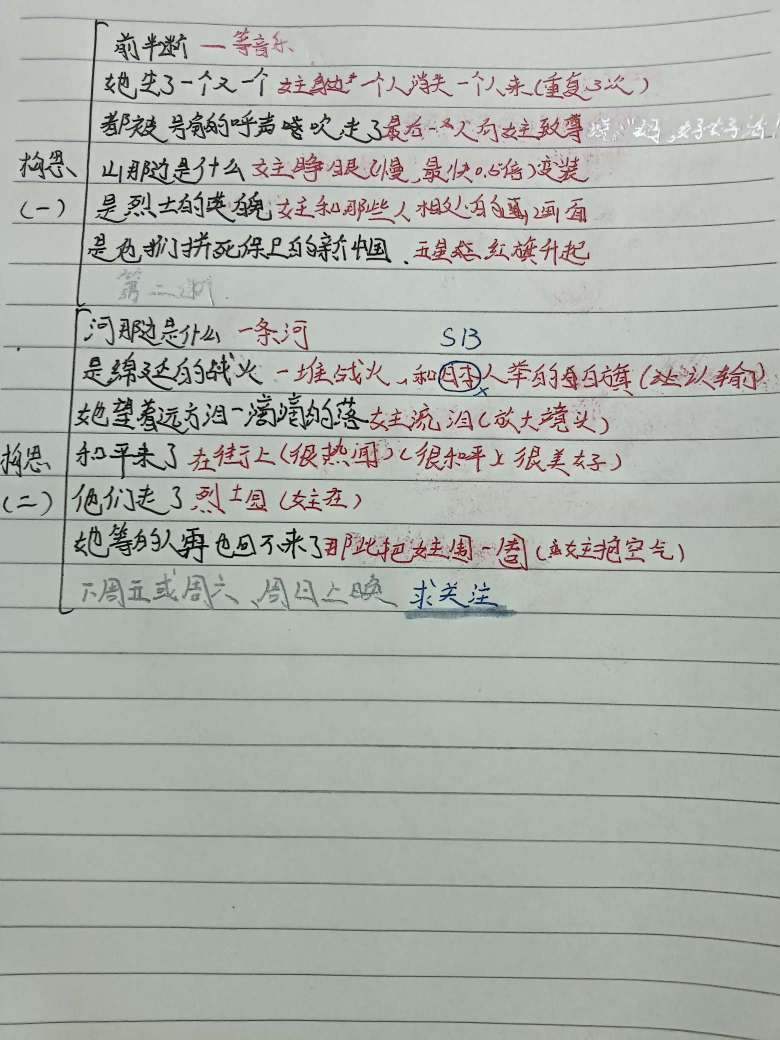 前半断 一等音乐
她失了一个又一个 女主身边 一个人消失一个人来(重复3次)
都被 号角的呼声 吹走了 最后一 人向女主致尊 妈,好好活!
构思 山那边是什么 女主睁眼(慢,最快0.5倍)变装
(一) 是烈士的英魂 女主和那些人相处的画面
是他们拼死保卫的新中国. 五星红旗升起
第二断
河那边是什么 一条河 SB
是绵延的战火 一堆战火、和日本人举的白旗(认输)
她望着远方泪一滴滴的落 女主流泪(放大镜头)
构思 和平来了 在街上(很热闹)(很和平)(很美好)
(二) 他们走了 烈士园(女主在)
她等的人再也回不来了 那些把女主围一圈(女主抱空气)
下周五或周六、周日上映 求关注